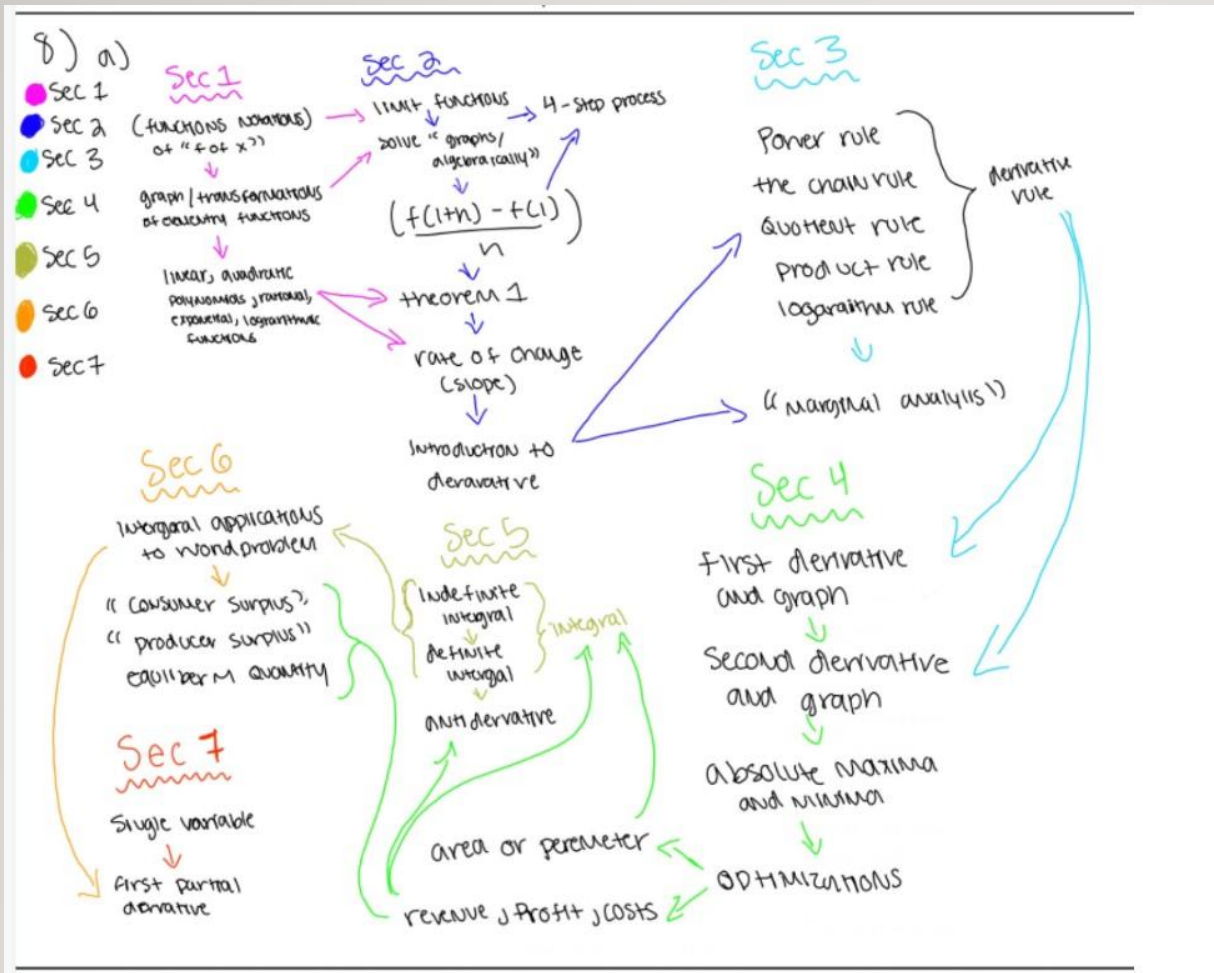 8) a)
Sec 1
Sec 2
Sec 3
Sec 4
Sec 5
Sec 6
Sec 7
Sec 1
(functions notations)
of "f of x"
graph/transformations
of elementry functions
linear, quadratic
polynomials, rational,
exponential, lograrithmic
functions
Sec 2
limit functions
4-step process
solve "graphs/
algebraically"
(f(1+h) - f(1))
h
theorem 1
rate of change
(slope)
Introduction to
deravative
Sec 3
Power rule
the chain rule
Quotient rule
product rule
logaraithm rule
derivative
rule
"marginal analysis"
Sec 4
first derivative
and graph
Second derivative
and graph
absolute maxima
and minima
optimizations
area or peremeter
revenue, profit, costs
Sec 5
Indefinite
integral
definite
intergal
integral
antiderivative
Sec 6
Intergral applications
to word problem
"consumer surplus",
"producer surplus"
equiliberm quantity
Sec 7
Single variable
first partial
derivative